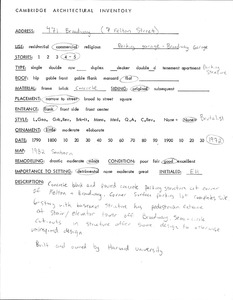 CAMBRIDGE ARCHITECTURAL INVENTORY
ADDRESS: 421 Broadway (7 Felton Street)
USE: residential commercial religious Parking garage - Broadway Garage
STORIES: 1 2 3 4-5
TYPE: single double row duplex double tenement apartment Parking structure
ROOF: hip gable front gable flank mansard flat
MATERIAL: frame brick Concrete SIDING: original subsequent
PLACEMENT: narrow to street broad to street square
ENTRANCE: flank front side front center
ORNAMENT: little moderate elaborate
DATE: 1790 1800 10 20 30 40 50 60 70 80 90 1900 10 20
MAP: 1982 Sanborn
REMODELING: drastic moderate minor CONDITION: poor fair good excellent
IMPORTANCE TO SETTING: detrimental none moderate great INITIALED:
DESCRIPTION: Concrete block and poured concrete parking structure at corner
of Felton + Broadway. Corner surface parking lot
with basement structure has pedestrian entrance
at stair/elevator tower off Broadway. Semi-circle
cutouts in structure offer some design to otherwise
uninspired design.
Built and owned by Harvard University